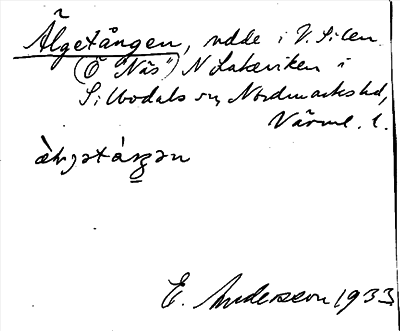 Älgetången, udde i V. Silen
(Ö "Näs") N Lakeviken i
Silbodals sn, Nordmarks hd,
Värml. l.
E. Andersson 1933